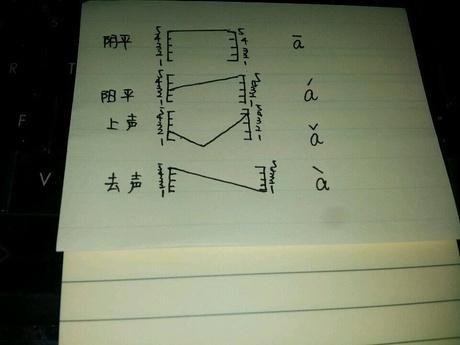 阴平 5 4 3 2 1 5 4 3 2 1 ā
阳平 5 4 3 2 1 5 4 3 2 1 á
上声 5 4 3 2 1 5 4 3 2 1 ǎ
去声 5 4 3 2 1 5 4 3 2 1 à
R
T
F
V